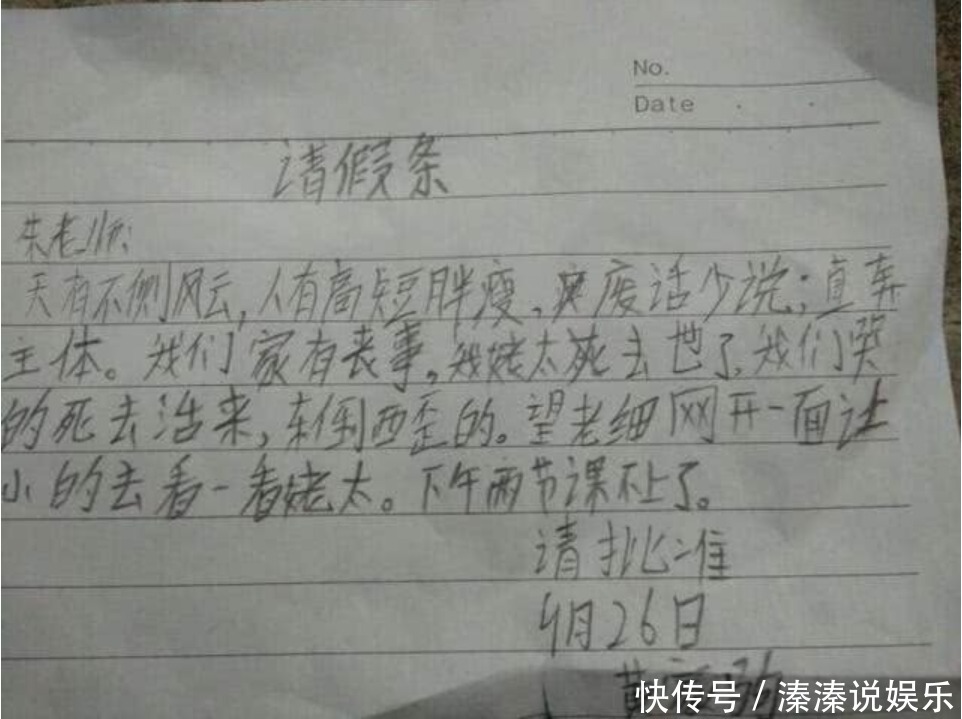 No.
Date
请假条
朱老师:
天有不侧风云,人有高短胖瘦,废话少说;直奔
主体。我们家有丧事,我姥太死去世了,我们哭
的死去活来,东倒西歪的。望老细网开一面让
小的去看一看姥太。下午两节课不上了。
请批准
4月26日
黄
快传号 / 溱溱说娱乐